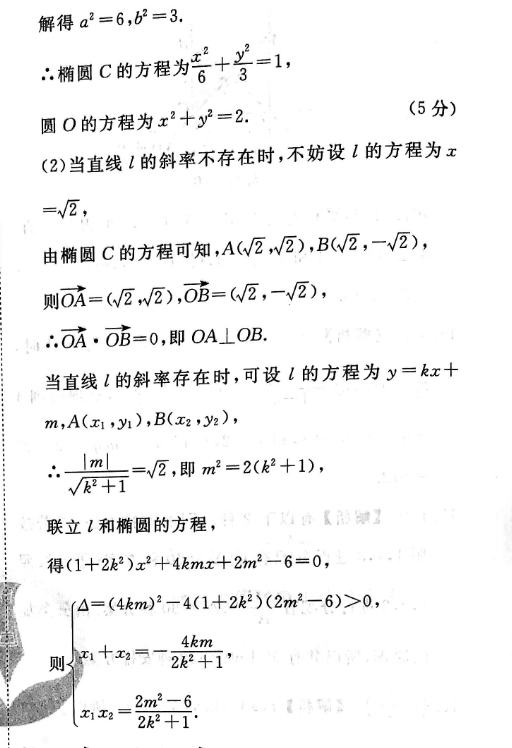 解得 a²=6,b²=3.
∴椭圆 C 的方程为x²/6+y²/3=1,
圆 O 的方程为 x²+y²=2. (5 分)
(2)当直线 l 的斜率不存在时,不妨设 l 的方程为 x
=√2,
由椭圆 C 的方程可知,A(√2,√2),B(√2,-√2),
则OA→=(√2,√2),OB→=(√2,-√2),
∴OA→·OB→=0,即 OA⊥OB.
当直线 l 的斜率存在时,可设 l 的方程为 y=kx+
m,A(x₁,y₁),B(x₂,y₂),
∴|m|/√(k²+1)=√2,即 m²=2(k²+1),
联立 l 和椭圆的方程,
得(1+2k²)x²+4kmx+2m²-6=0,
则{Δ=(4km)²-4(1+2k²)(2m²-6)>0,
x₁+x₂=-4km/(2k²+1),
x₁x₂=(2m²-6)/(2k²+1).